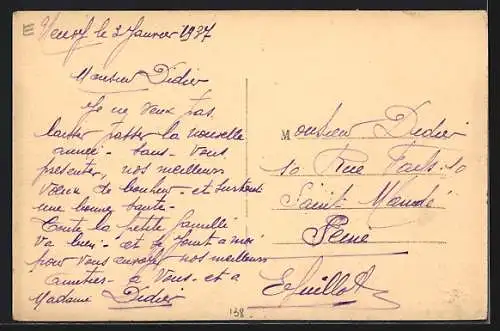 le 2 Janvier 1937
Monsieur Didier
Je ne veux pas
laisser passer la nouvelle
année - sans - vous
presenter, nos meilleurs
vœux de bonheur - et surtout
une bonne santé -
Toute la petite famille
va bien - et se joint a moi
pour vous envoyer nos meilleurs
amitiés - a Vous - et a
Madame Didier
Monsieur Didier
10 Rue 10
Saint Mandé
Seine
Guillot
138